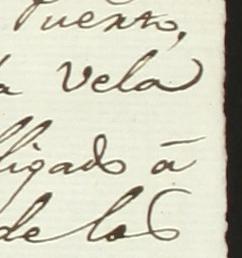 Puerto,
a Vela
ligado á
de los